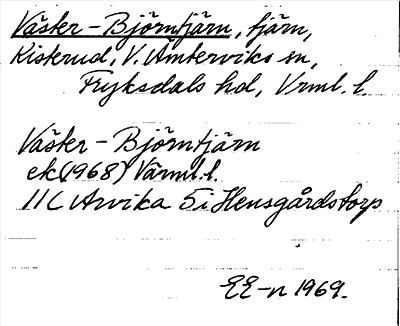 Väster-Björntjärn, tjärn,
Kisterud, V. Ämterviks sn,
Fryksdals hd, Vrml. l.
Väster-Björntjärn
ek(1968) Värml. l.
11C Arvika 5i Hensgårdstorp
EE-n 1969.